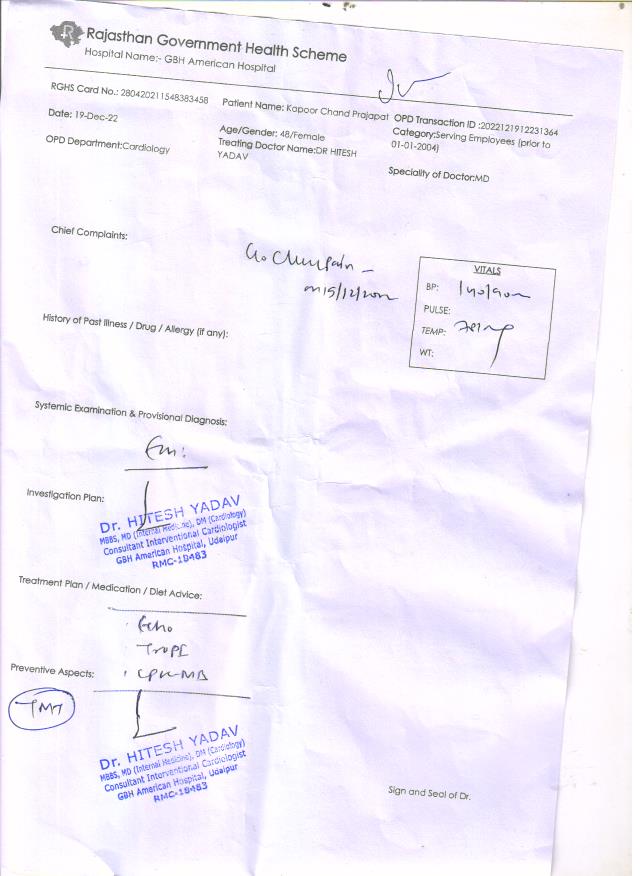 Rajasthan Government Health Scheme
Hospital Name:- GBH American Hospital
RGHS Card No.: 280420211548383458
Patient Name: Kapoor Chand Prajapat
OPD Transaction ID :2022121912231364
Date: 19-Dec-22
Age/Gender: 48/Female
Category:Serving Employees (prior to
01-01-2004)
OPD Department:Cardiology
Treating Doctor Name:DR HITESH
YADAV
Speciality of Doctor:MD
Chief Complaints:
on 15/12/2022
VITALS
BP: 140/90
PULSE:
TEMP:
WT:
History of Past Illness / Drug / Allergy (if any):
Systemic Examination & Provisional Diagnosis:
Investigation Plan:
Dr. HITESH YADAV
MBBS, MD (Internal Medicine), DM (Cardiology)
Consultant Interventional Cardiologist
GBH American Hospital, Udaipur
RMC-18483
Treatment Plan / Medication / Diet Advice:
Echo
TropI
CPK-MB
Preventive Aspects:
TMT
Dr. HITESH YADAV
MBBS, MD (Internal Medicine), DM (Cardiology)
Consultant Interventional Cardiologist
GBH American Hospital, Udaipur
RMC-18483
Sign and Seal of Dr.